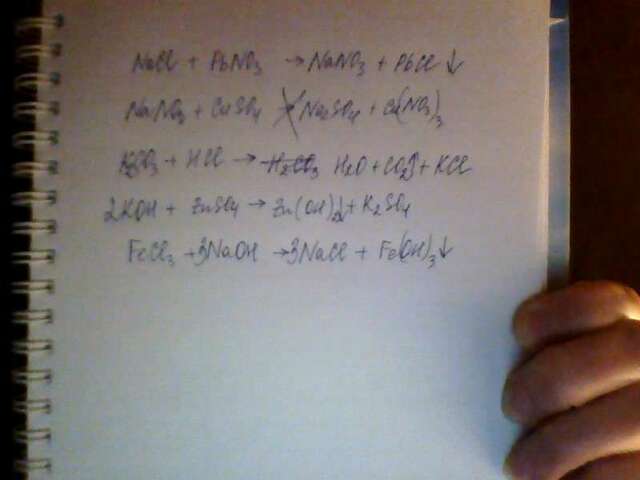 NaCl + PbNO₃ → NaNO₃ + PbCl↓
NaNO₃ + CuSO₄ ↛ Na₂SO₄ + Cu(NO₃)₃
K₂CO₃ + HCl → H₂CO₃ H₂O + CO₂↑ + KCl
2KOH + ZnSO₄ → Zn(OH)₂↓ + K₂SO₄
FeCl₃ + 3NaOH → 3NaCl + Fe(OH)₃↓